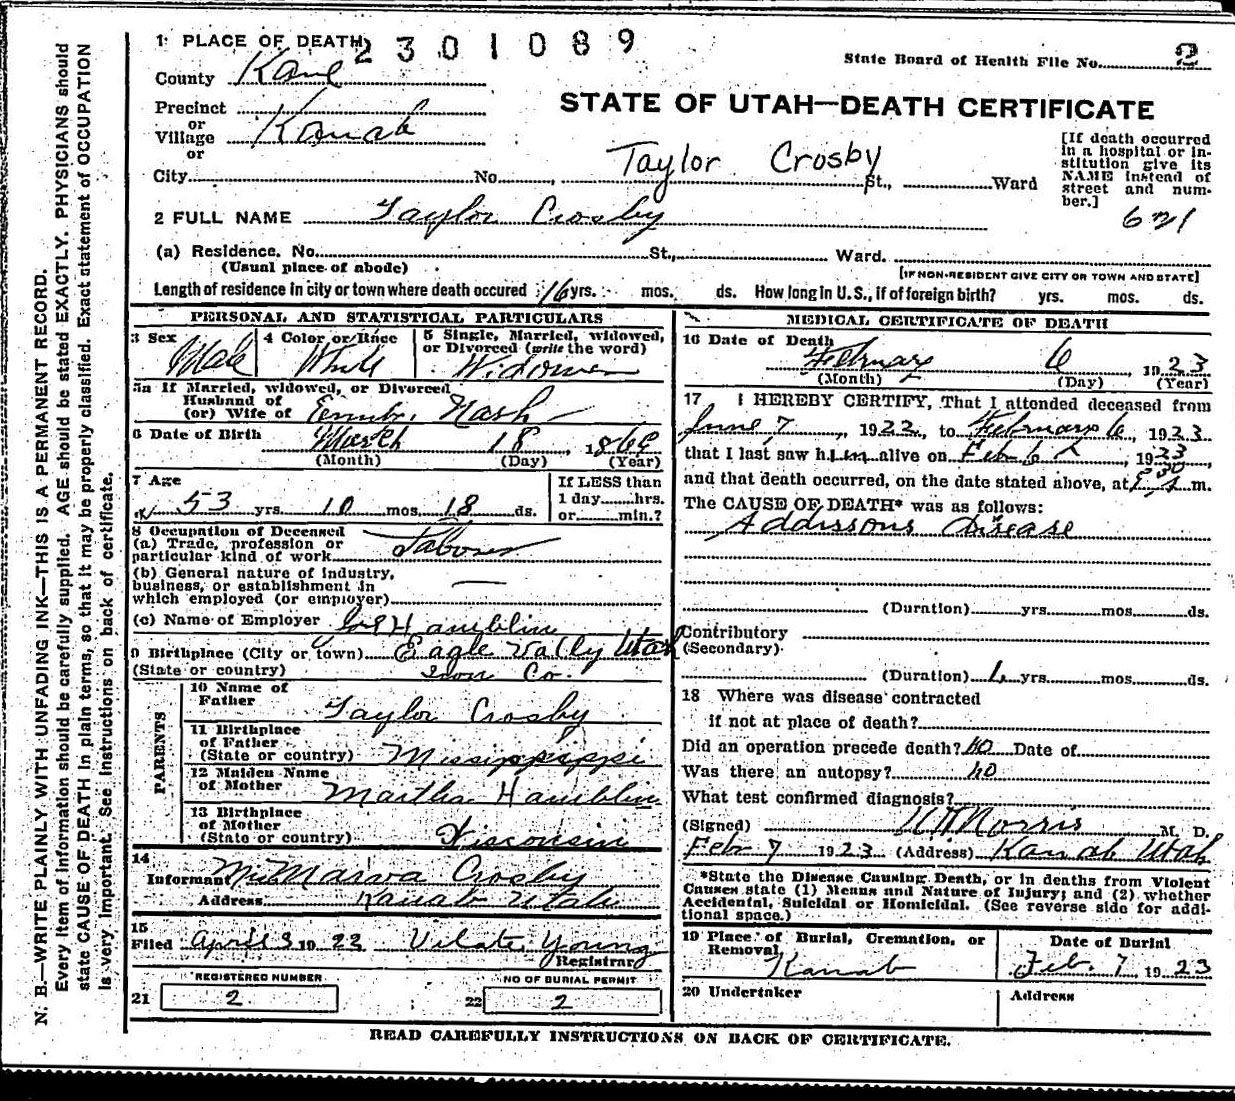 N. B.—WRITE PLAINLY WITH UNFADING INK—THIS IS A PERMANENT RECORD.
Every item of information should be carefully supplied. AGE should be stated EXACTLY. PHYSICIANS should
state CAUSE OF DEATH in plain terms, so that it may be properly classified. Exact statement of OCCUPATION
is very important. See instructions on back of certificate.
1 PLACE OF DEATH
2301089
State Board of Health File No. 2
County Kane
STATE OF UTAH—DEATH CERTIFICATE
Precinct
or
Village Kanab
or
[If death occurred
in a hospital or in-
stitution give its
NAME instead of
street and num-
ber.]
Taylor Crosby
City No. St., Ward
621
2 FULL NAME Taylor Crosby
(a) Residence. No. St., Ward.
(Usual place of abode)
[IF NON-RESIDENT GIVE CITY OR TOWN AND STATE]
Length of residence in city or town where death occured 16 yrs. mos. ds. How long in U.S., if of foreign birth? yrs. mos. ds.
PERSONAL AND STATISTICAL PARTICULARS
3 Sex Male
4 Color or Race White
5 Single, Married, widowed,
or Divorced (write the word)
Widower
5a If Married, widowed, or Divorced
Husband of
(or) Wife of Nash
6 Date of Birth March 18, 1869
(Month) (Day) (Year)
7 Age
53 yrs. 10 mos. 18 ds.
If LESS than
1 day hrs.
or min.?
8 Occupation of Deceased
(a) Trade, profession or
particular kind of work Laborer
(b) General nature of industry,
business, or establishment in
which employed (or employer) —
(c) Name of Employer Hamblin
9 Birthplace (City or town) Eagle Vally Utah
(State or country) Iron Co.
PARENTS
10 Name of
Father Taylor Crosby
11 Birthplace
of Father
(State or country) Missippippi
12 Maiden Name
of Mother Martha Hamblin
13 Birthplace
of Mother
(State or country) Wisconsin
14
Informant Crosby
Address Kanab Utah
15
Filed April 3 1923 Vilate Young
Registrar
REGISTERED NUMBER
21 2
NO OF BURIAL PERMIT
22 2
MEDICAL CERTIFICATE OF DEATH
16 Date of Death
February 6, 1923
(Month) (Day) (Year)
17 I HEREBY CERTIFY, That I attended deceased from
June 7, 1922, to February 6, 1923
that I last saw him alive on Feb 6, 1923,
and that death occurred, on the date stated above, at m.
The CAUSE OF DEATH* was as follows:
Addissons disease
(Duration) yrs. mos. ds.
Contributory
(Secondary)
(Duration) yrs. mos. ds.
18 Where was disease contracted
if not at place of death?
Did an operation precede death? no Date of
Was there an autopsy? no
What test confirmed diagnosis?
(Signed) Norris M. D.
Febr 7 1923 (Address) Kanab Utah
*State the Disease Causing Death, or in deaths from Violent
Causes state (1) Means and Nature of Injury; and (2) whether
Accidental, Suicidal or Homicidal. (See reverse side for addi-
tional space.)
19 Place of Burial, Cremation, or
Removal
Kanab
Date of Burial
Feb. 7, 1923
20 Undertaker
Address
READ CAREFULLY INSTRUCTIONS ON BACK OF CERTIFICATE.